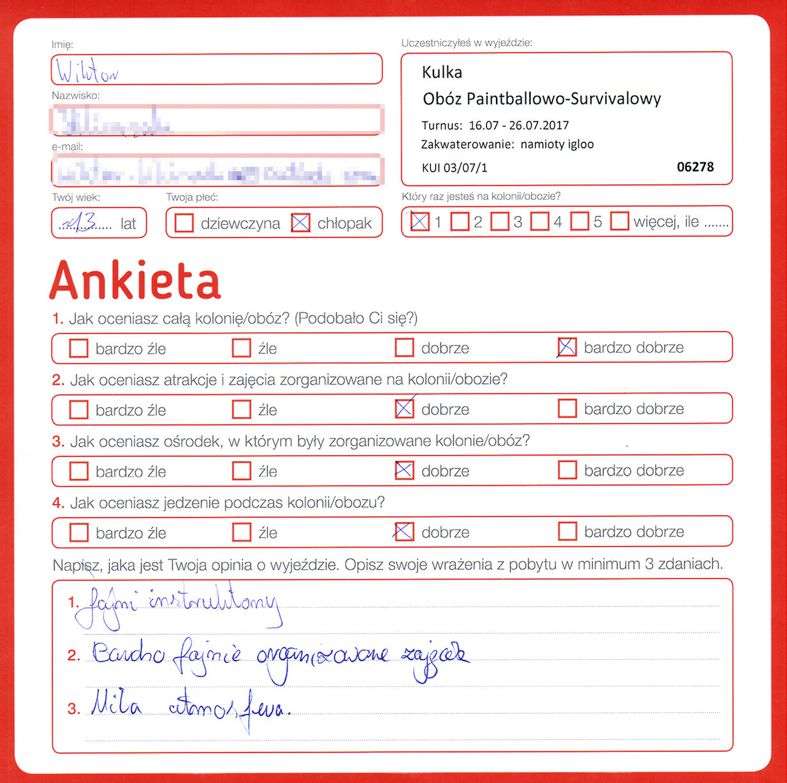 Imię:
Wiktor
Nazwisko:
e-mail:
Twój wiek:
13 lat
Twoja płeć:
dziewczyna chłopak
Uczestniczyłeś w wyjeździe:
Kulka
Obóz Paintballowo-Survivalowy
Turnus: 16.07 - 26.07.2017
Zakwaterowanie: namioty igloo
KUI 03/07/1 06278
Który raz jesteś na kolonii/obozie?
1 2 3 4 5 więcej, ile .......
Ankieta
1. Jak oceniasz całą kolonię/obóz? (Podobało Ci się?)
bardzo źle źle dobrze bardzo dobrze
2. Jak oceniasz atrakcje i zajęcia zorganizowane na kolonii/obozie?
bardzo źle źle dobrze bardzo dobrze
3. Jak oceniasz ośrodek, w którym były zorganizowane kolonie/obóz?
bardzo źle źle dobrze bardzo dobrze
4. Jak oceniasz jedzenie podczas kolonii/obozu?
bardzo źle źle dobrze bardzo dobrze
Napisz, jaka jest Twoja opinia o wyjeździe. Opisz swoje wrażenia z pobytu w minimum 3 zdaniach.
1. fajni instruktorzy
2. Bardzo fajnie organizowane zajęcia
3. Miła atmosfera.